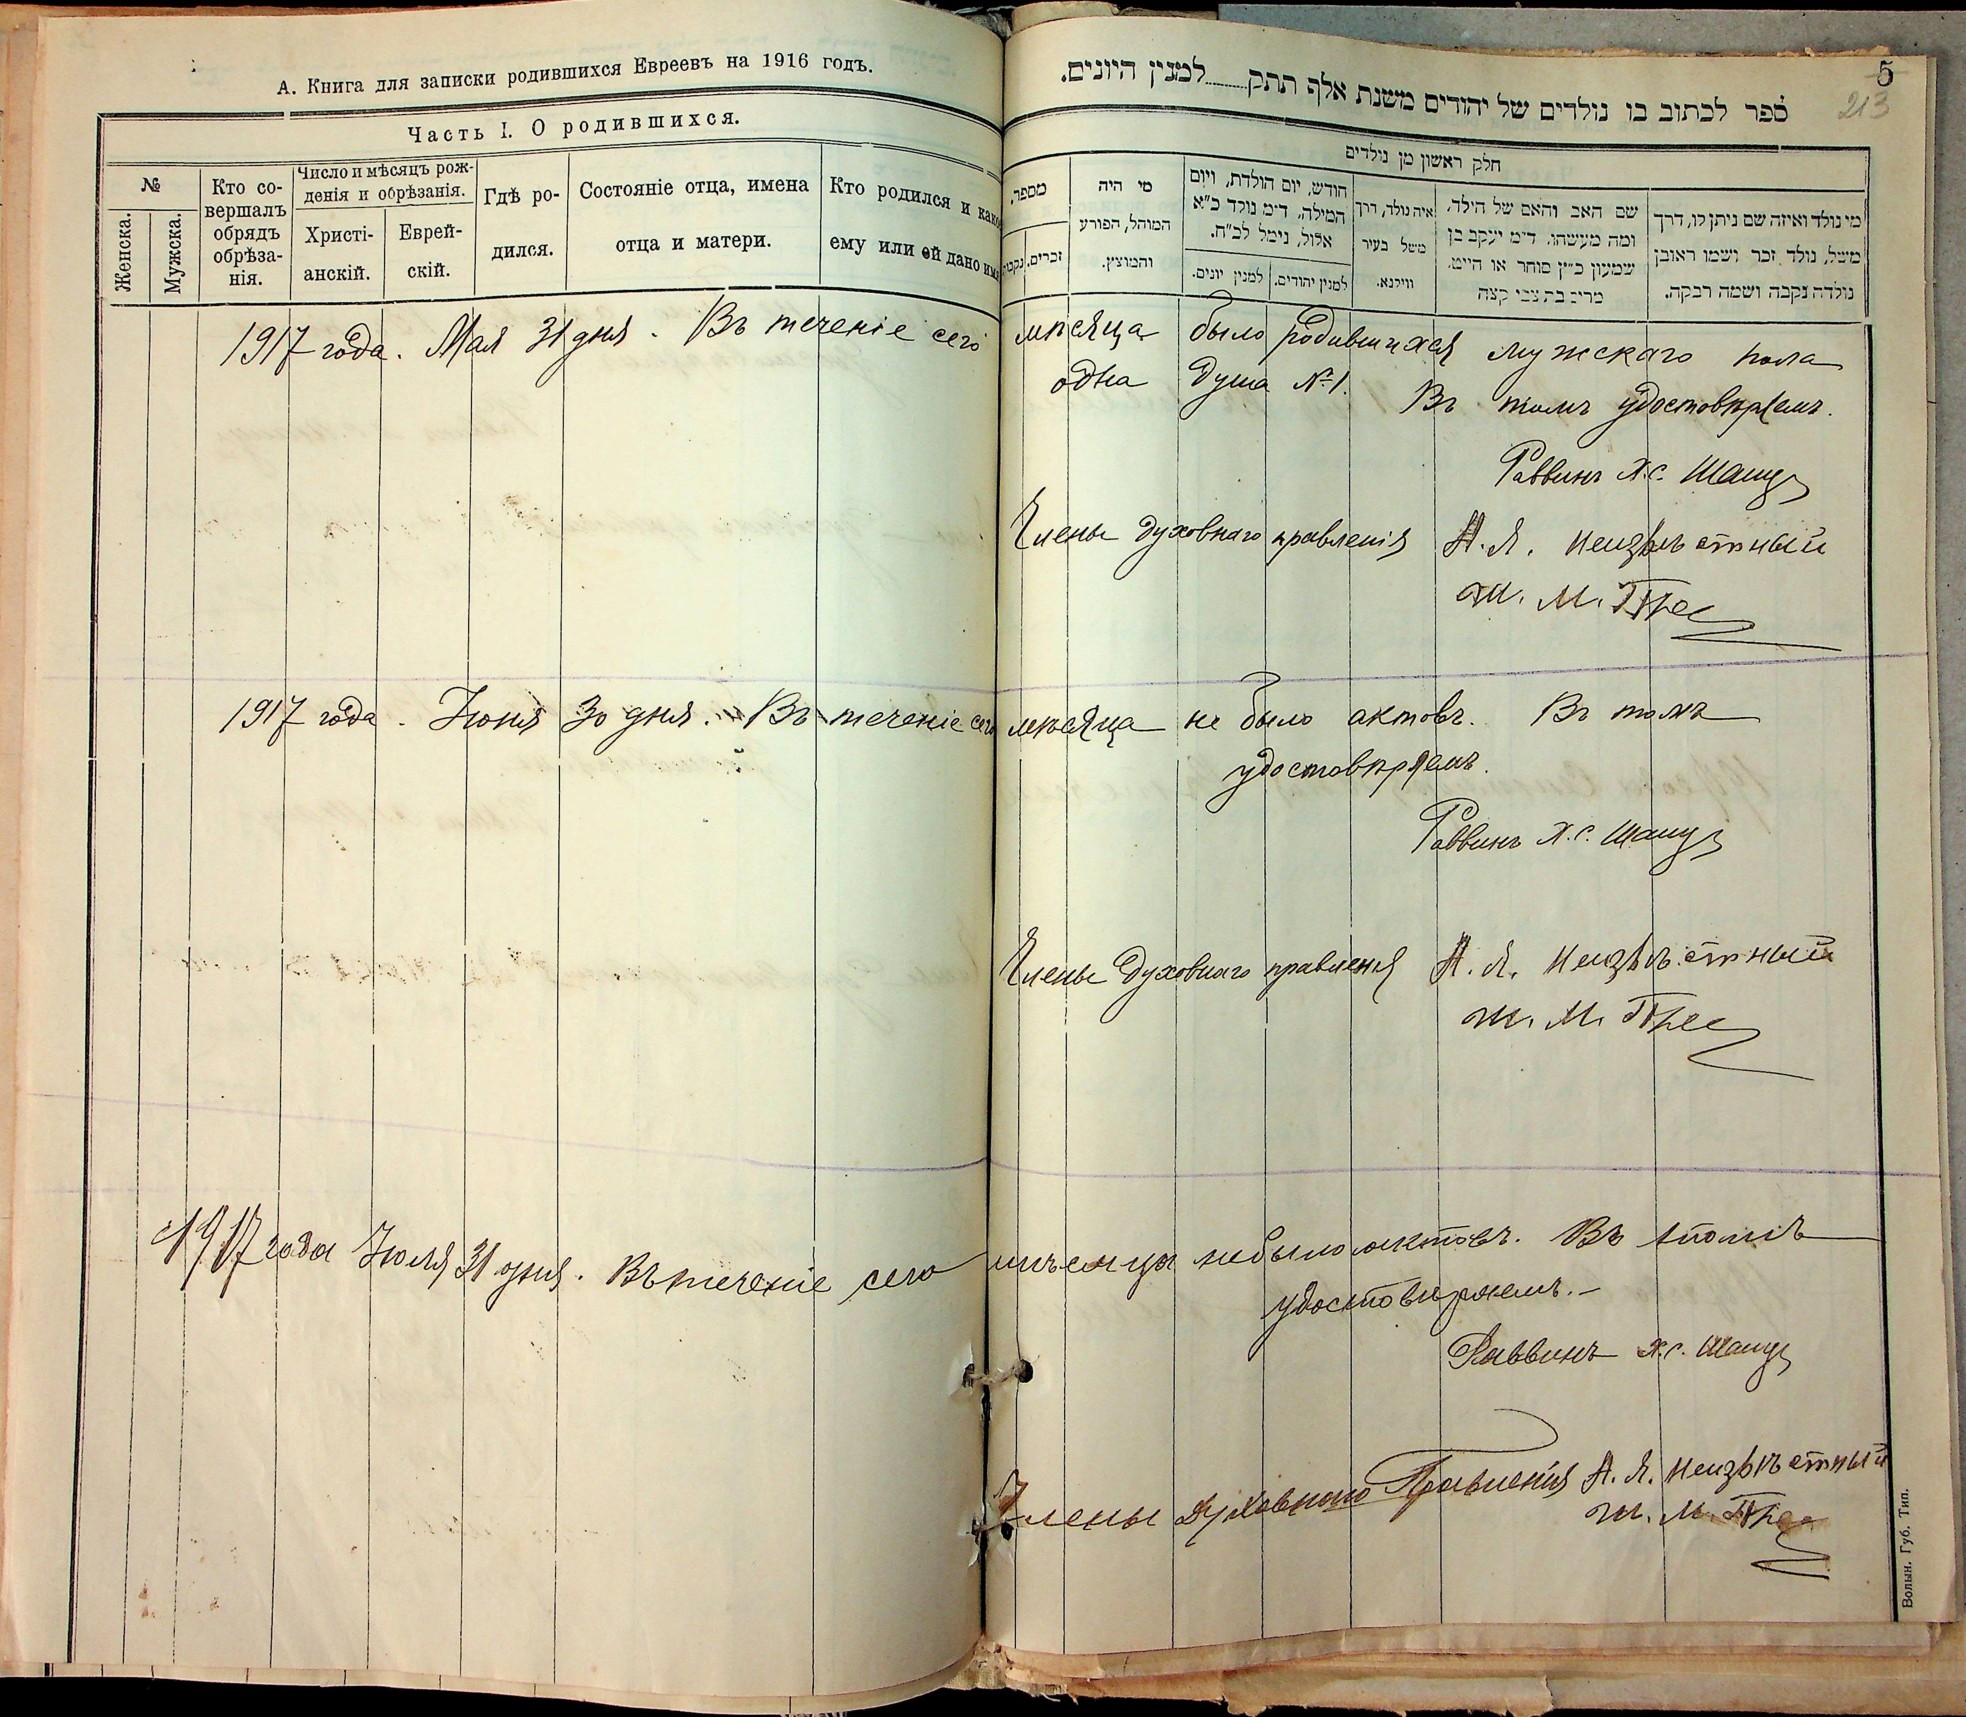 А. Книга для записки родившихся Евреевъ на 1916 годъ.
Часть I. О родившихся.
№
Женска.
Мужска.
Кто со-
вершалъ
обрядъ
обрѣза-
нія.
Число и мѣсяцъ рож-
денія и обрѣзанія.
Христі-
анскій.
Еврей-
скій.
Гдѣ ро-
дился.
Состояніе отца, имена
отца и матери.
Кто родился и како
ему или ей дано имя
5
213
ספר לכתוב בו נולדים של יהודים משנת אלף תתק........למנין היונים.
חלק ראשון מן נולדים
מספר.
זכרים.
נקבות
מי היה
המוהל, הפורע
והמוצץ.
חודש, יום הולדת, ויום
המילה. ד״מ נולד כ״א
אלול, נימל לכ״ח.
למנין יהודים.
למנין יונים.
איה נולד, דרך
משל בעיר
ווילנא.
שם האב והאם של הילד,
ומה מעשהו. ד״מ יעקב בן
שמעון כ״ץ סוחר או חייט.
מרים בת צבי קצה
מי נולד ואיזה שם ניתן לו, דרך
משל, נולד זכר ושמו ראובן
נולדה נקבה ושמה רבקה.
1917 года. Мая 31 дня. Въ теченіе сего мѣсяца было родившихся мужскаго пола
одна душа №1. Въ томъ удостовѣряемъ.
Раввинъ Х.С. Шацъ
Члены духовнаго правленія А.Я. Неизвѣстный
Ш. М.
1917 года. Іюня 30 дня. Въ теченіе сего мѣсяца не было актовъ. Въ томъ
удостовѣряемъ.
Раввинъ Х.С. Шацъ
Члены духовнаго правленія А.Я. Неизвѣстный
Ш. М.
1917 года Іюля 31 дня. Въ теченіе сего мѣсяца не было актовъ. Въ томъ
удостовѣряемъ.—
Раввинъ Х.С. Шацъ
Члены Духовнаго Правленія А.Я. Неизвѣстный
Ш. М.
Волын. Губ. Тип.